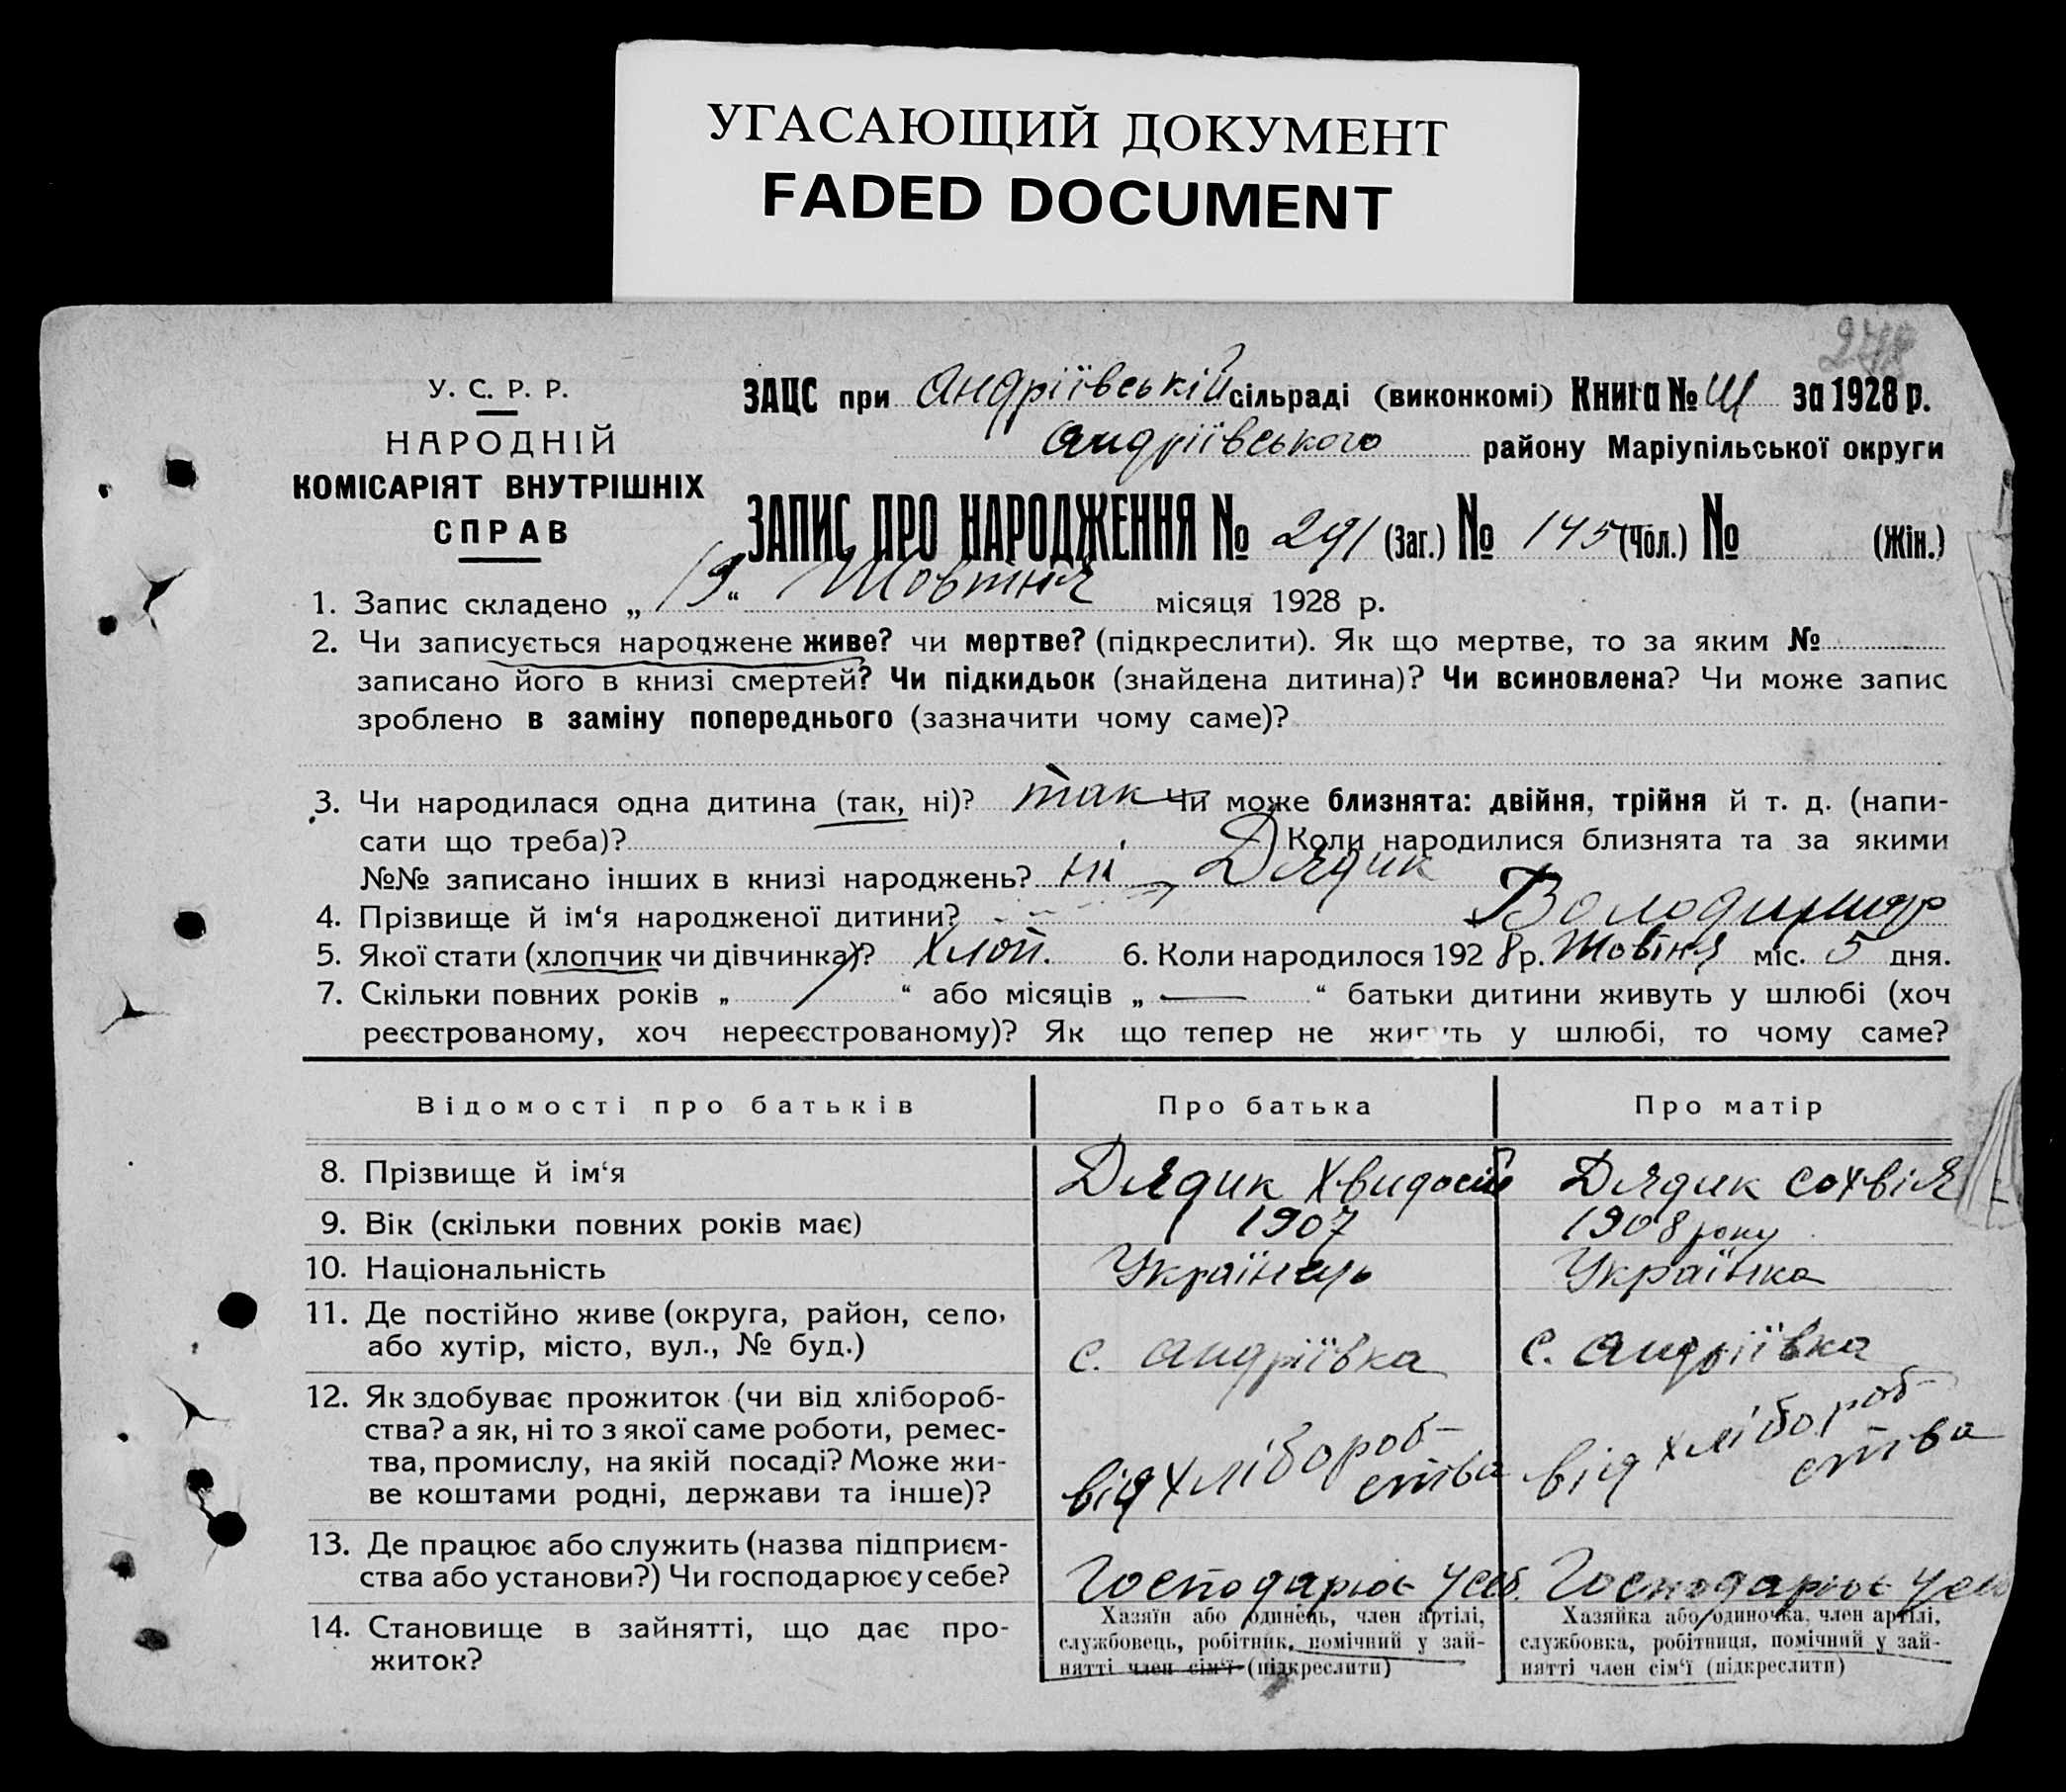 УГАСАЮЩИЙ ДОКУМЕНТ
FADED DOCUMENT
У. С. Р. Р.
НАРОДНІЙ
КОМІСАРІЯТ ВНУТРІШНІХ
СПРАВ
ЗАЦС при Андріївській сільраді (виконкомі) Книга № III за 1928 р.
Андріївського району Маріупільської округи
ЗАПИС ПРО НАРОДЖЕННЯ № 291 (Заг.) № 145 (Чол.) № (Жін.)
1. Запис складено „ 19 “ Жовтня місяця 1928 р.
2. Чи записується народжене живе? чи мертве? (підкреслити). Як що мертве, то за яким №
записано його в книзі смертей? Чи підкидьок (знайдена дитина)? Чи всиновлена? Чи може запис
зроблено в заміну попереднього (зазначити чому саме)?
3. Чи народилася одна дитина (так, ні)? так Чи може близнята: двійня, трійня й т. д. (напи-
сати що треба)? Коли народилися близнята та за якими
№№ записано інших в книзі народжень? ні
4. Прізвище й ім‘я народженої дитини? Дядик Володимир
5. Якої стати (хлопчик чи дівчинка)? Хлоп. 6. Коли народилося 192 8 р. Жовтня міс. 5 дня.
7. Скільки повних років „ “ або місяців „ — “ батьки дитини живуть у шлюбі (хоч
реєстрованому, хоч нереєстрованому)? Як що тепер не живуть у шлюбі, то чому саме?
Відомості про батьків Про батька Про матір
8. Прізвище й ім‘я Дядик Дядик Сохвія
9. Вік (скільки повних років має) 1907 1908 року
10. Національність Українець Українка
11. Де постійно живе (округа, район, село,
або хутір, місто, вул., № буд.) с. Андріївка с. Андріївка
12. Як здобуває прожиток (чи від хлібороб-
ства? а як, ні то з якої саме роботи, ремес-
тва, промислу, на якій посаді? Може жи-
ве коштами родні, держави та інше)? від хлібороб-
ства від хлібороб-
ства
13. Де працює або служить (назва підприєм-
ства або установи?) Чи господарює у себе? Господарює у себ. Господарює у
14. Становище в зайнятті, що дає про-
житок?
Хазяїн або одинець, член артілі,
службовець, робітник, помічний у зай-
нятті член сім‘ї (підкреслити)
Хазяйка або одиночка, член артілі,
службовка, робітниця, помічний у зай-
нятті член сім‘ї (підкреслити)